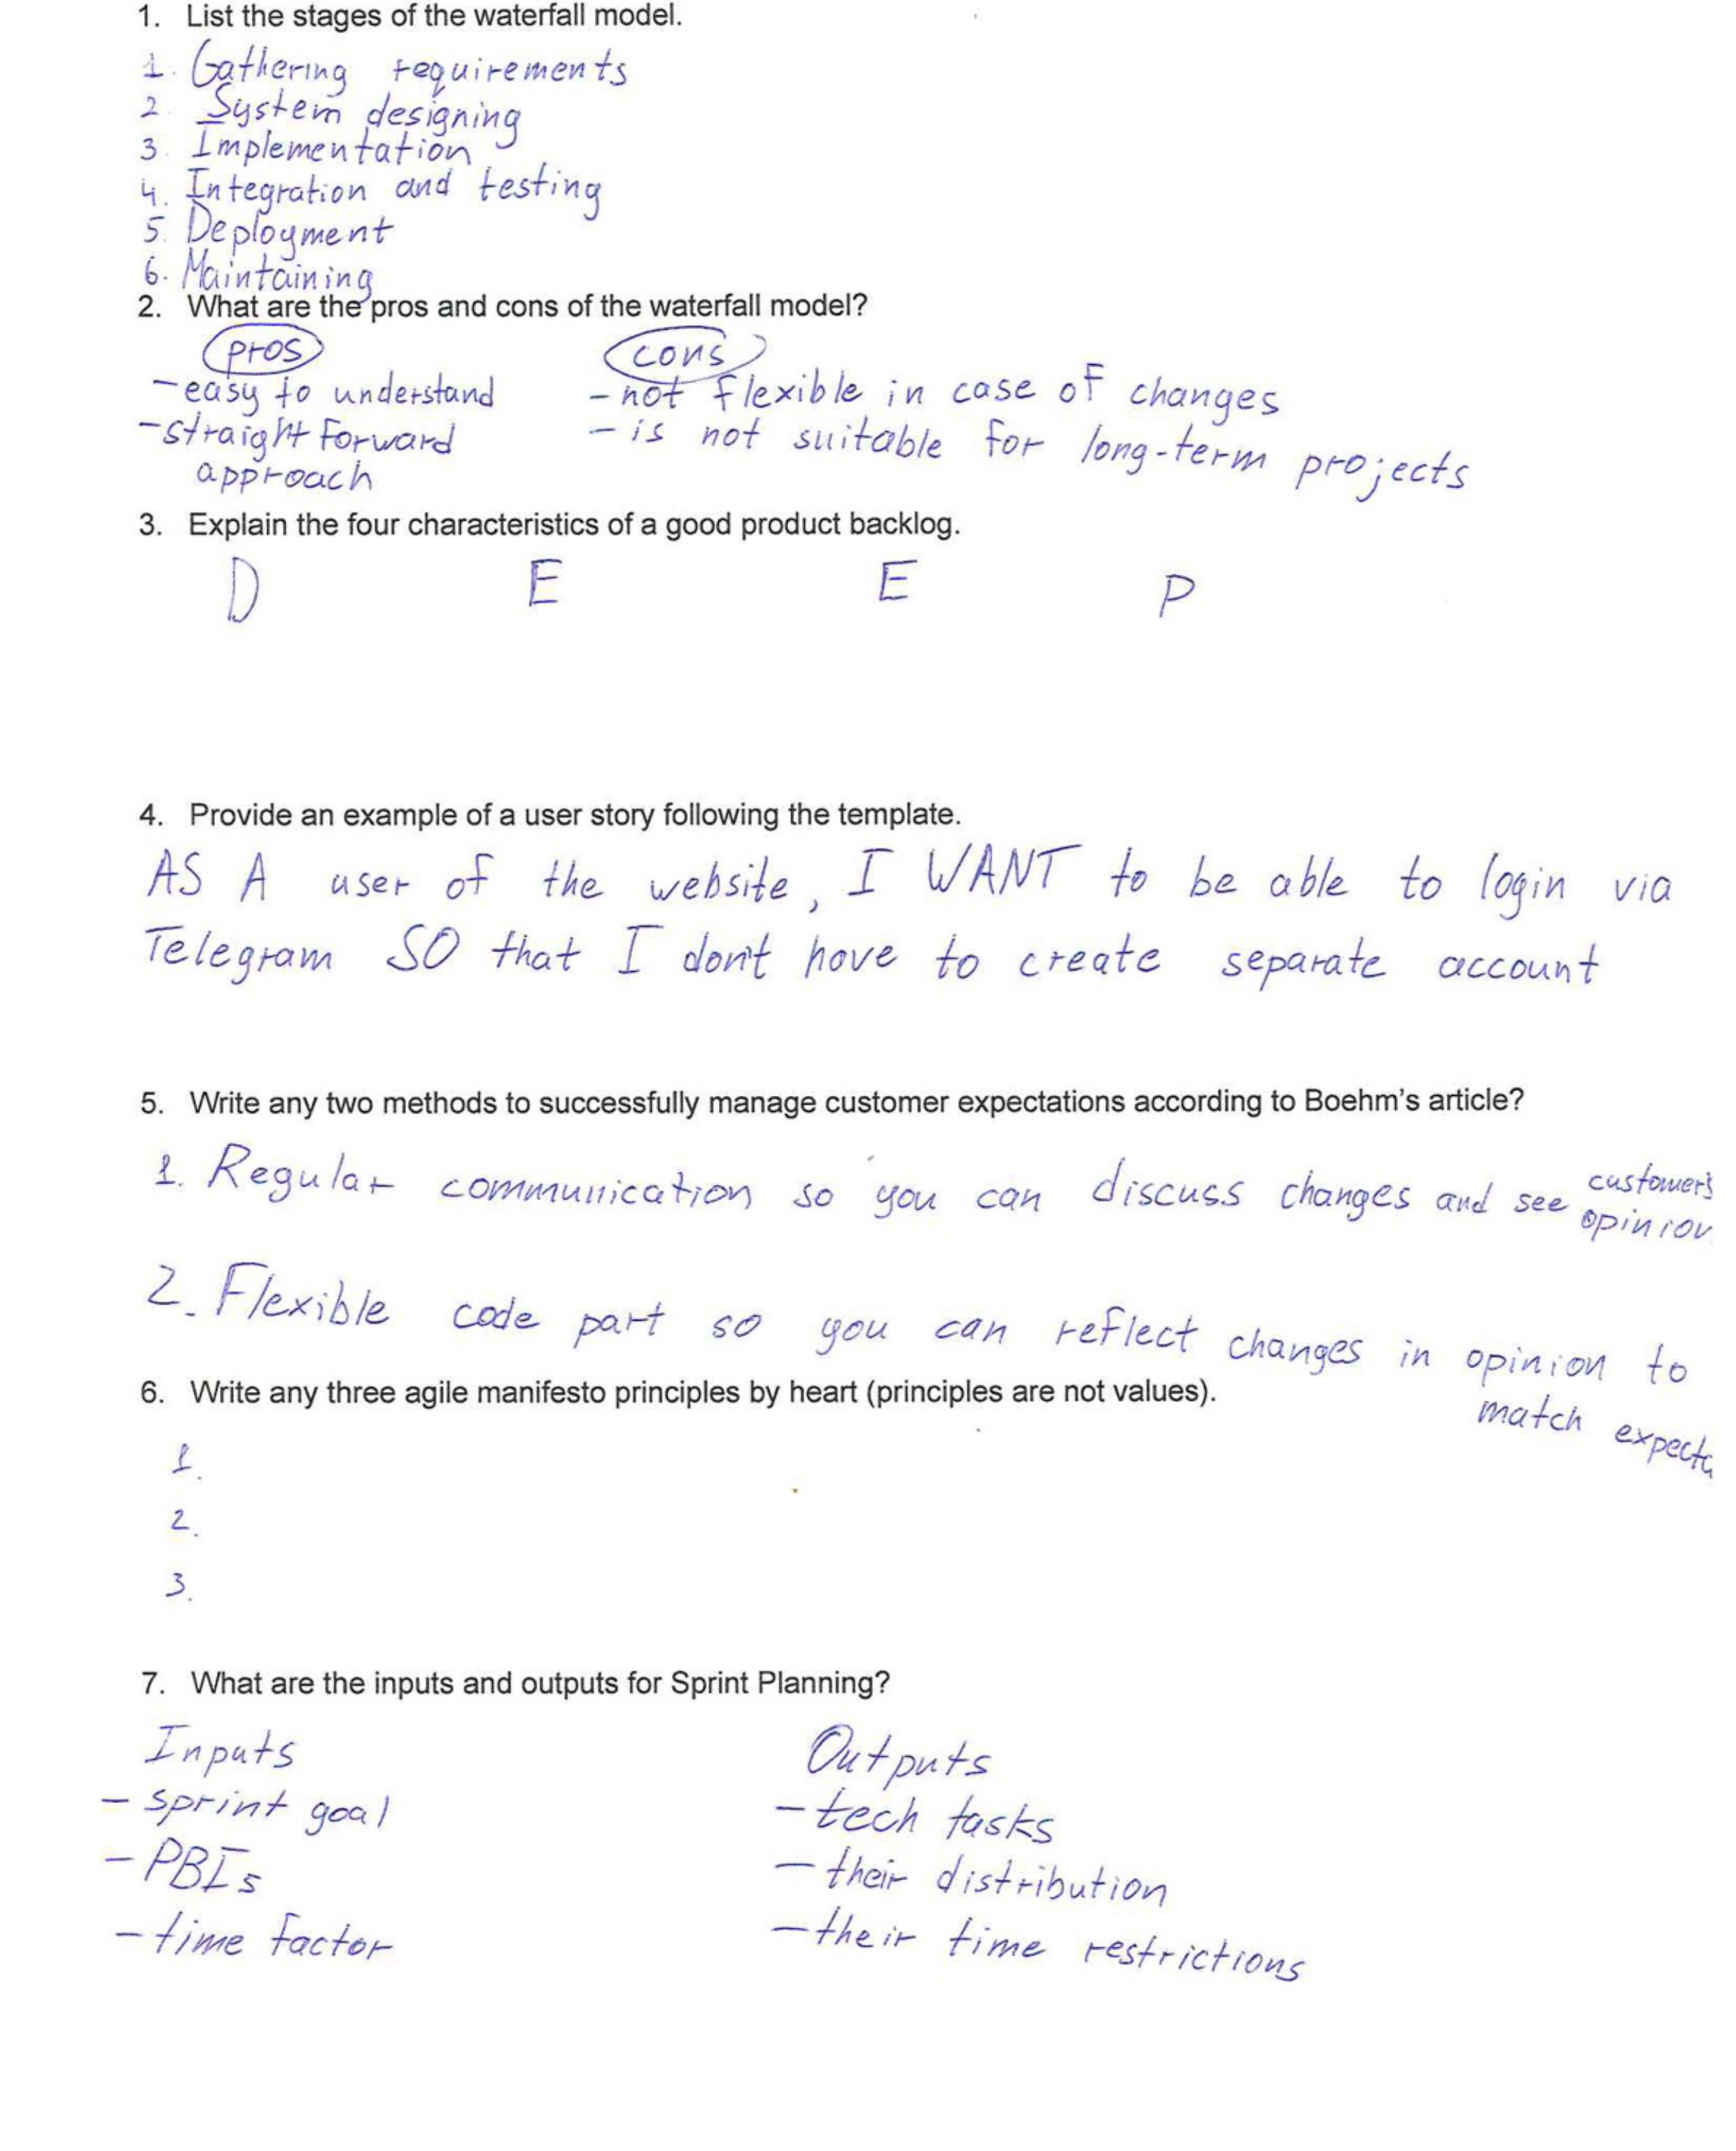 1. List the stages of the waterfall model.
1. Gathering requirements
2. System designing
3. Implementation
4. Integration and testing
5. Deployment
6. Maintaining
2. What are the pros and cons of the waterfall model?
pros cons
- easy to understand - not flexible in case of changes
- straight forward - is not suitable for long-term projects
approach
3. Explain the four characteristics of a good product backlog.
D E E P
4. Provide an example of a user story following the template.
AS A user of the website, I WANT to be able to login via
Telegram SO that I don't have to create separate account
5. Write any two methods to successfully manage customer expectations according to Boehm's article?
1. Regular communication so you can discuss changes and see customer's
opinion
2. Flexible code part so you can reflect changes in opinion to
match expecta
6. Write any three agile manifesto principles by heart (principles are not values).
1.
2.
3.
7. What are the inputs and outputs for Sprint Planning?
Inputs Outputs
- sprint goal - tech tasks
- PBIs - their distribution
- time factor - their time restrictions